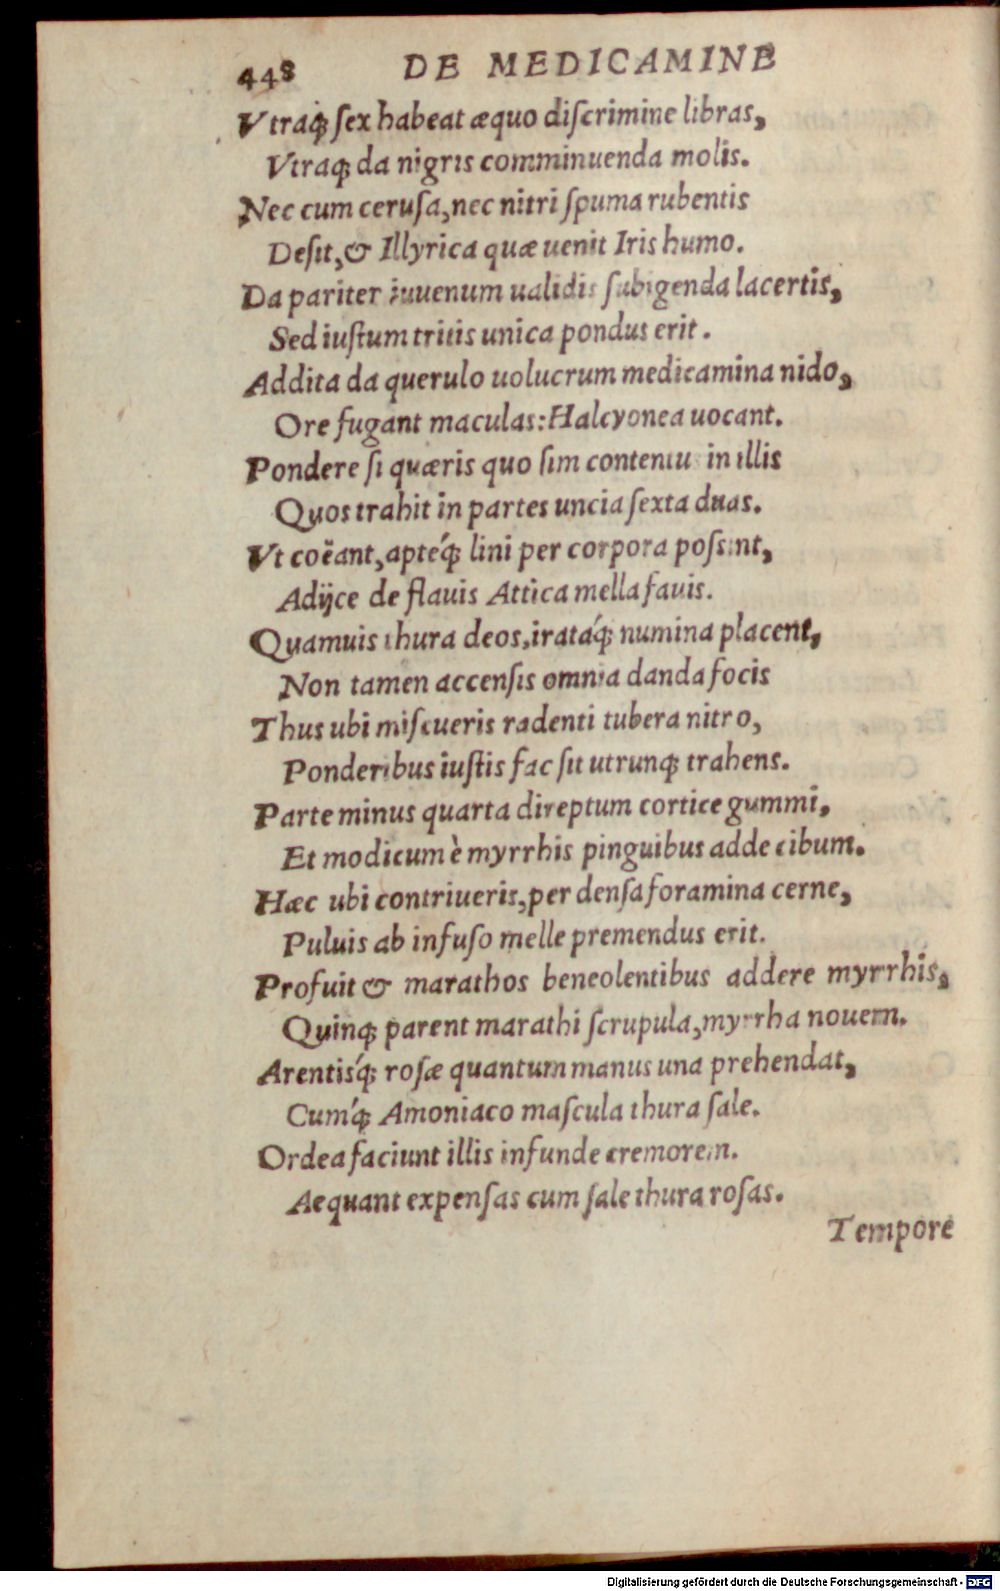 448 DE MEDICAMINE
Vtraq; ſex habeat æquo diſcrimine libras,
Vtraq; da nigris comminuenda molis.
Nec cum ceruſa, nec nitri ſpuma rubentis
Deſit, & Illyrica quæ uenit Iris humo.
Da pariter iuuenum ualidis ſubigenda lacertis,
Sed iuſtum tritis unica pondus erit.
Addita da querulo uolucrum medicamina nido,
Ore fugant maculas: Halcyonea uocant.
Pondere ſi quæris quo ſim contentus in illis
Quos trahit in partes uncia ſexta duas.
Vt coëant, apteq́; lini per corpora poſsint,
Adijce de flauis Attica mella fauis.
Quamuis thura deos, irataq́; numina placent,
Non tamen accenſis omnia danda focis
Thus ubi miſcueris radenti tubera nitro,
Ponderibus iuſtis fac ſit utrunq; trahens.
Parte minus quarta direptum cortice gummi,
Et modicum è myrrhis pinguibus adde cibum.
Hæc ubi contriueris, per denſa foramina cerne,
Puluis ab infuſo melle premendus erit.
Profuit & marathos beneolentibus addere myrrhis,
Quinq; parent marathi ſcrupula, myrrha nouem.
Arentisq́; roſæ quantum manus una prehendat,
Cumq́; Amoniaco maſcula thura ſale.
Ordea faciunt illis infunde cremorem.
Aequant expenſas cum ſale thura roſas.
Tempore
Digitalisierung gefördert durch die Deutsche Forschungsgemeinschaft - DFG